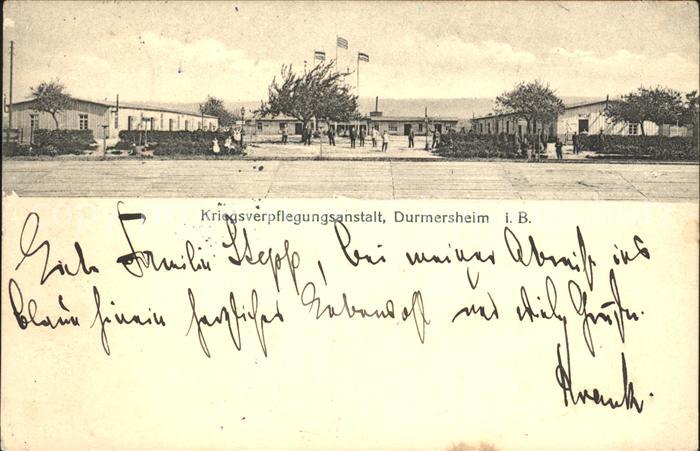 Kriegsverpflegungsanstalt, Durmersheim i. B.
Familie Stepp, bei meiner Abreise ins
blaue hinein herzliches Lebewohl und viele Grüße.
Krank.